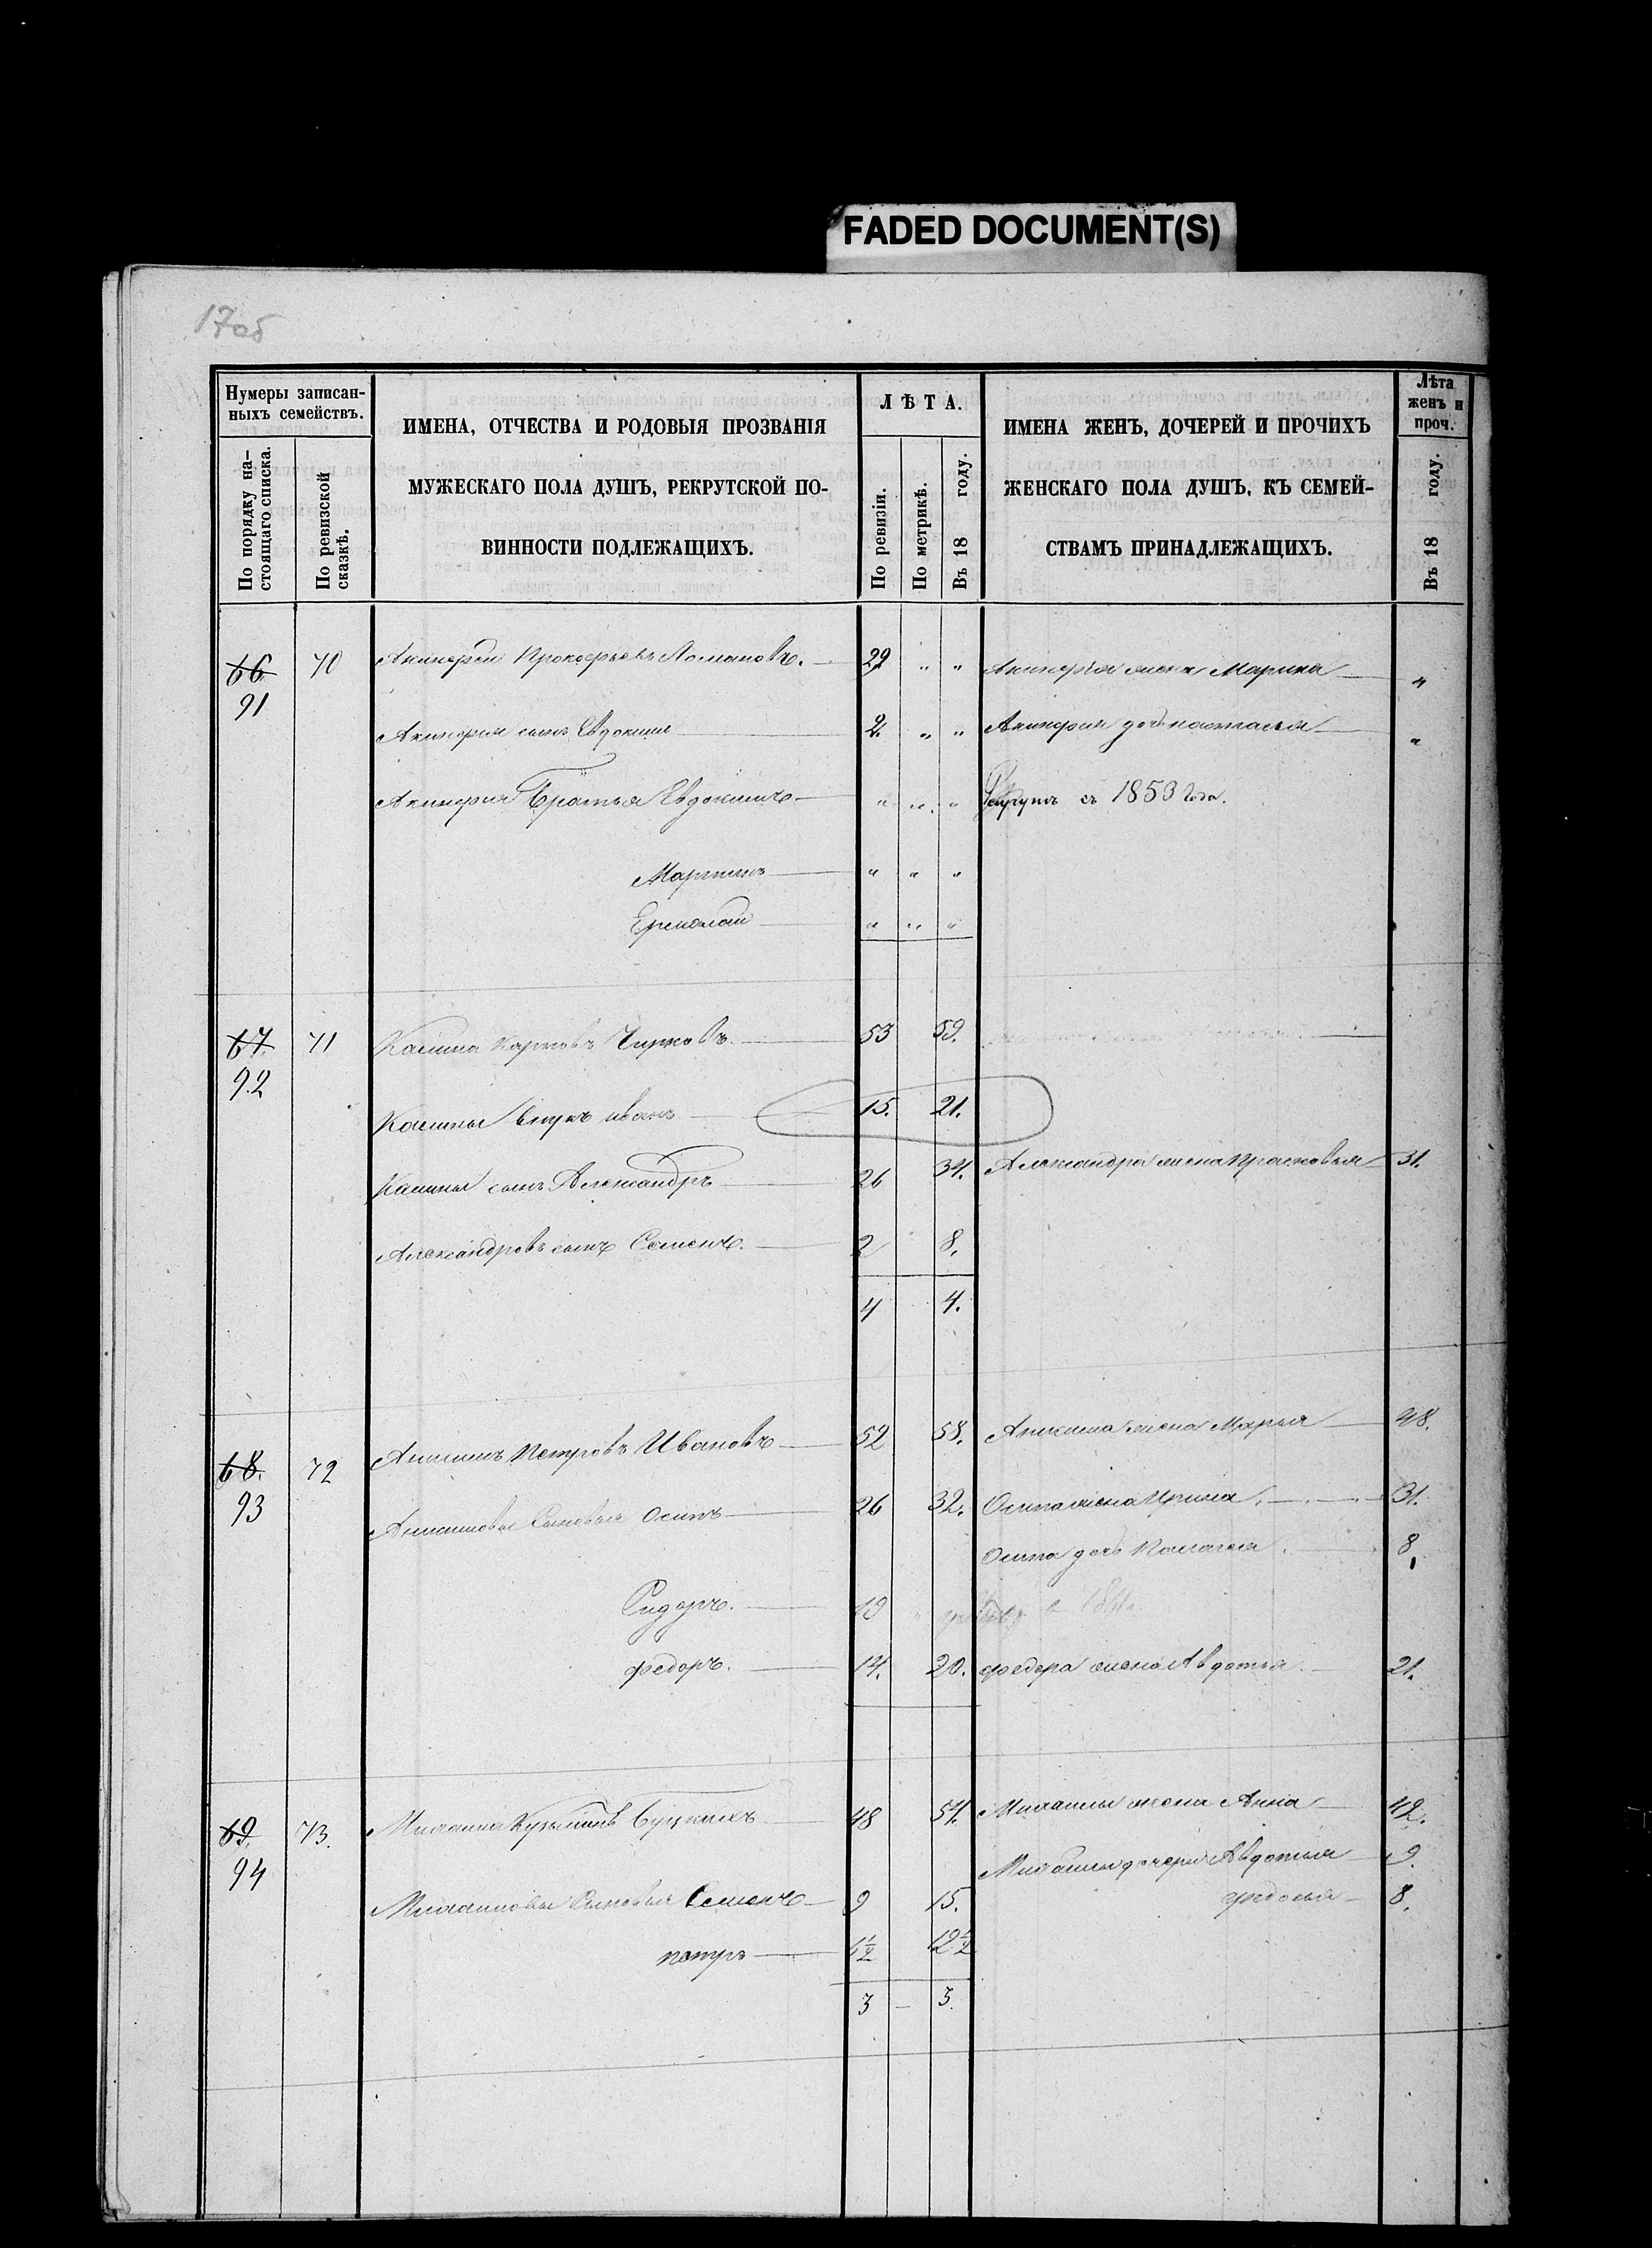 FADED DOCUMENT(S)
17об
Нумеры записан-
ныхъ семействъ.
По порядку на-
стоящаго списка.
По ревизской
сказкѣ.
ИМЕНА, ОТЧЕСТВА И РОДОВЫЯ ПРОЗВАНІЯ
МУЖЕСКАГО ПОЛА ДУШЪ, РЕКРУТСКОЙ ПО-
ВИННОСТИ ПОДЛЕЖАЩИХЪ.
ЛѢТА.
По ревизіи.
По метрикѣ.
Въ 18 году.
ИМЕНА ЖЕНЪ, ДОЧЕРЕЙ И ПРОЧИХЪ
ЖЕНСКАГО ПОЛА ДУШЪ, КЪ СЕМЕЙ-
СТВАМЪ ПРИНАДЛЕЖАЩИХЪ.
Лѣта
женъ и
проч.
Въ 18 году.
66 70 Акинфей Прокофьевъ Ломановъ. 29 " " Акинфія жена Марина "
91
Акинфія сынъ Евдокимъ 2. " " Акинфия дочь настасья "
Акинфия Братья Евдокимъ " " " Рекрутъ съ 1853 года.
Мартинъ " " "
Ермолай " " "
67 71 Калина Карповъ Чирковъ. 53 59.
92
Калины внукъ иванъ 15. 21.
Калины сынъ Александръ 26 34. Александра жена Прасковья 31.
Александровъ сынъ Семенъ. 2 8.
4 4.
68. 72 Анисимъ Петровъ Ивановъ 52 58. Анисима жена Марья 48.
93
Анисимовы Сыновья Осипъ 26 32. Осипа жена Ирина. 31.
Осипа дочь Палагея. 8.
Сидоръ. 19
федоръ. 14. 20. федора жена Авдотья. 21.
69. 73. Михаила Кузьминъ 48 54. Михаилы жена Анна 42.
94
Михаилы дочери Авдотья 9.
Михаиловы Сыновья Семенъ 9 15. федосья 8.
петръ 1½
3 – 3.